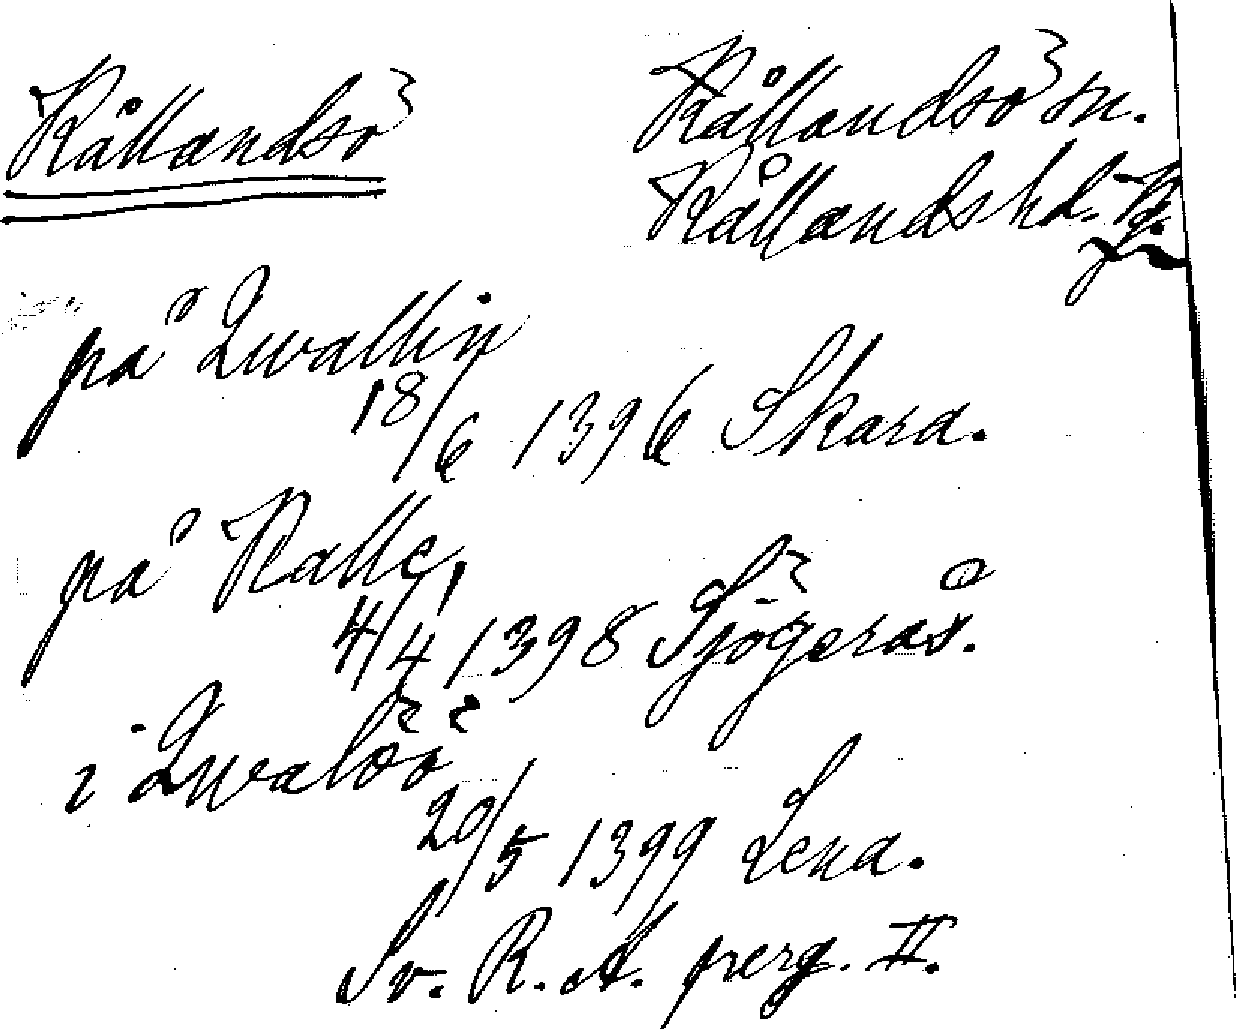 Kållandsö
Kållandsö sn.
Kållands hd.
på Qwallin
18/6 1396 Skara.
på Kalle,
4/4 1398 Sjögerås.
i Qwalöö
20/5 1399 Lena.
Sv. R. A. perg. II.